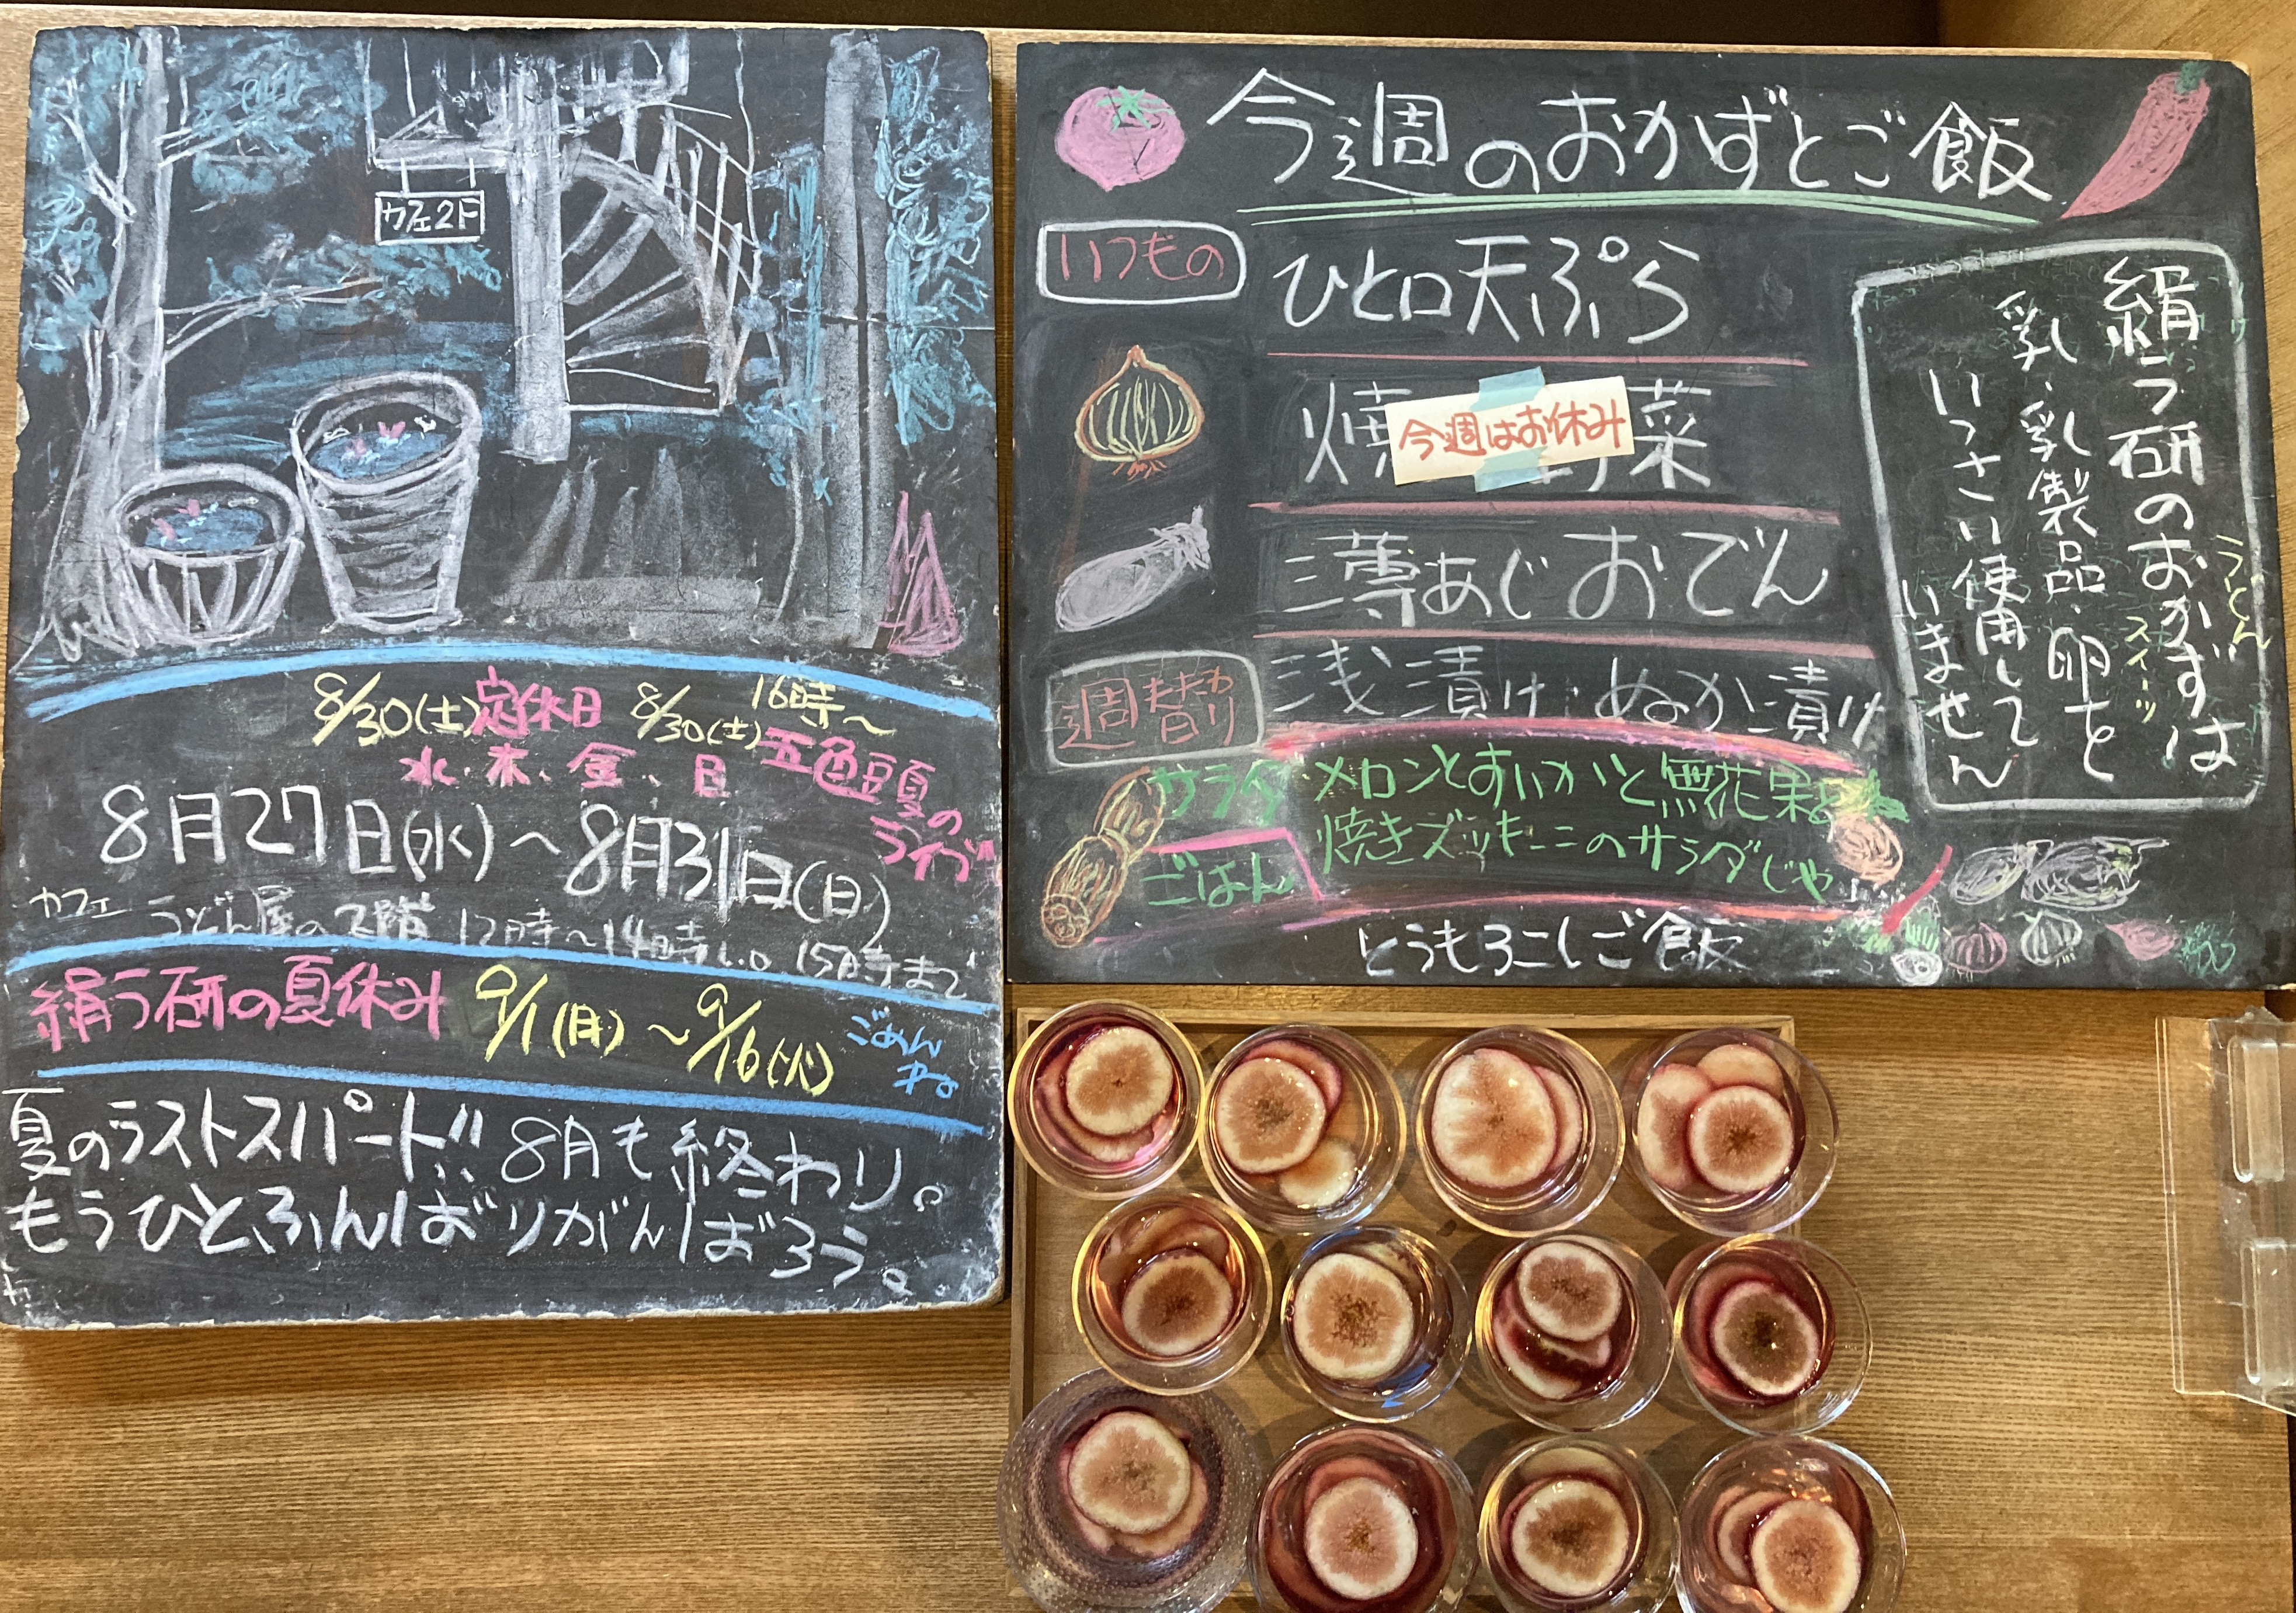 カフェ2F
8/30(土)定休日 8/30(土)16時〜
水・木・金・日 五色豆夏の
ライブ
8月27日(水)〜8月31日(日)
カフェ うどん屋の2階 12時〜14時L.O 15時まで
絹う研の夏休み 9/1(月)〜9/16(火) ごめん
夏のラストスパート!! 8月も終わり。
もうひとふんばりがんばろう。
今週のおかずとご飯
いつもの
ひと口天ぷら
焼 菜
今週はお休み
薄あじおでん
週替わり
浅漬け ぬか漬け
サラダ メロンとすいかと無花果と
焼きズッキーニのサラダじゃ
ごはん
とうもろこしご飯
絹う研のおかずは
うどん
スイーツ
乳・乳製品・卵を
いっさい使用して
いません